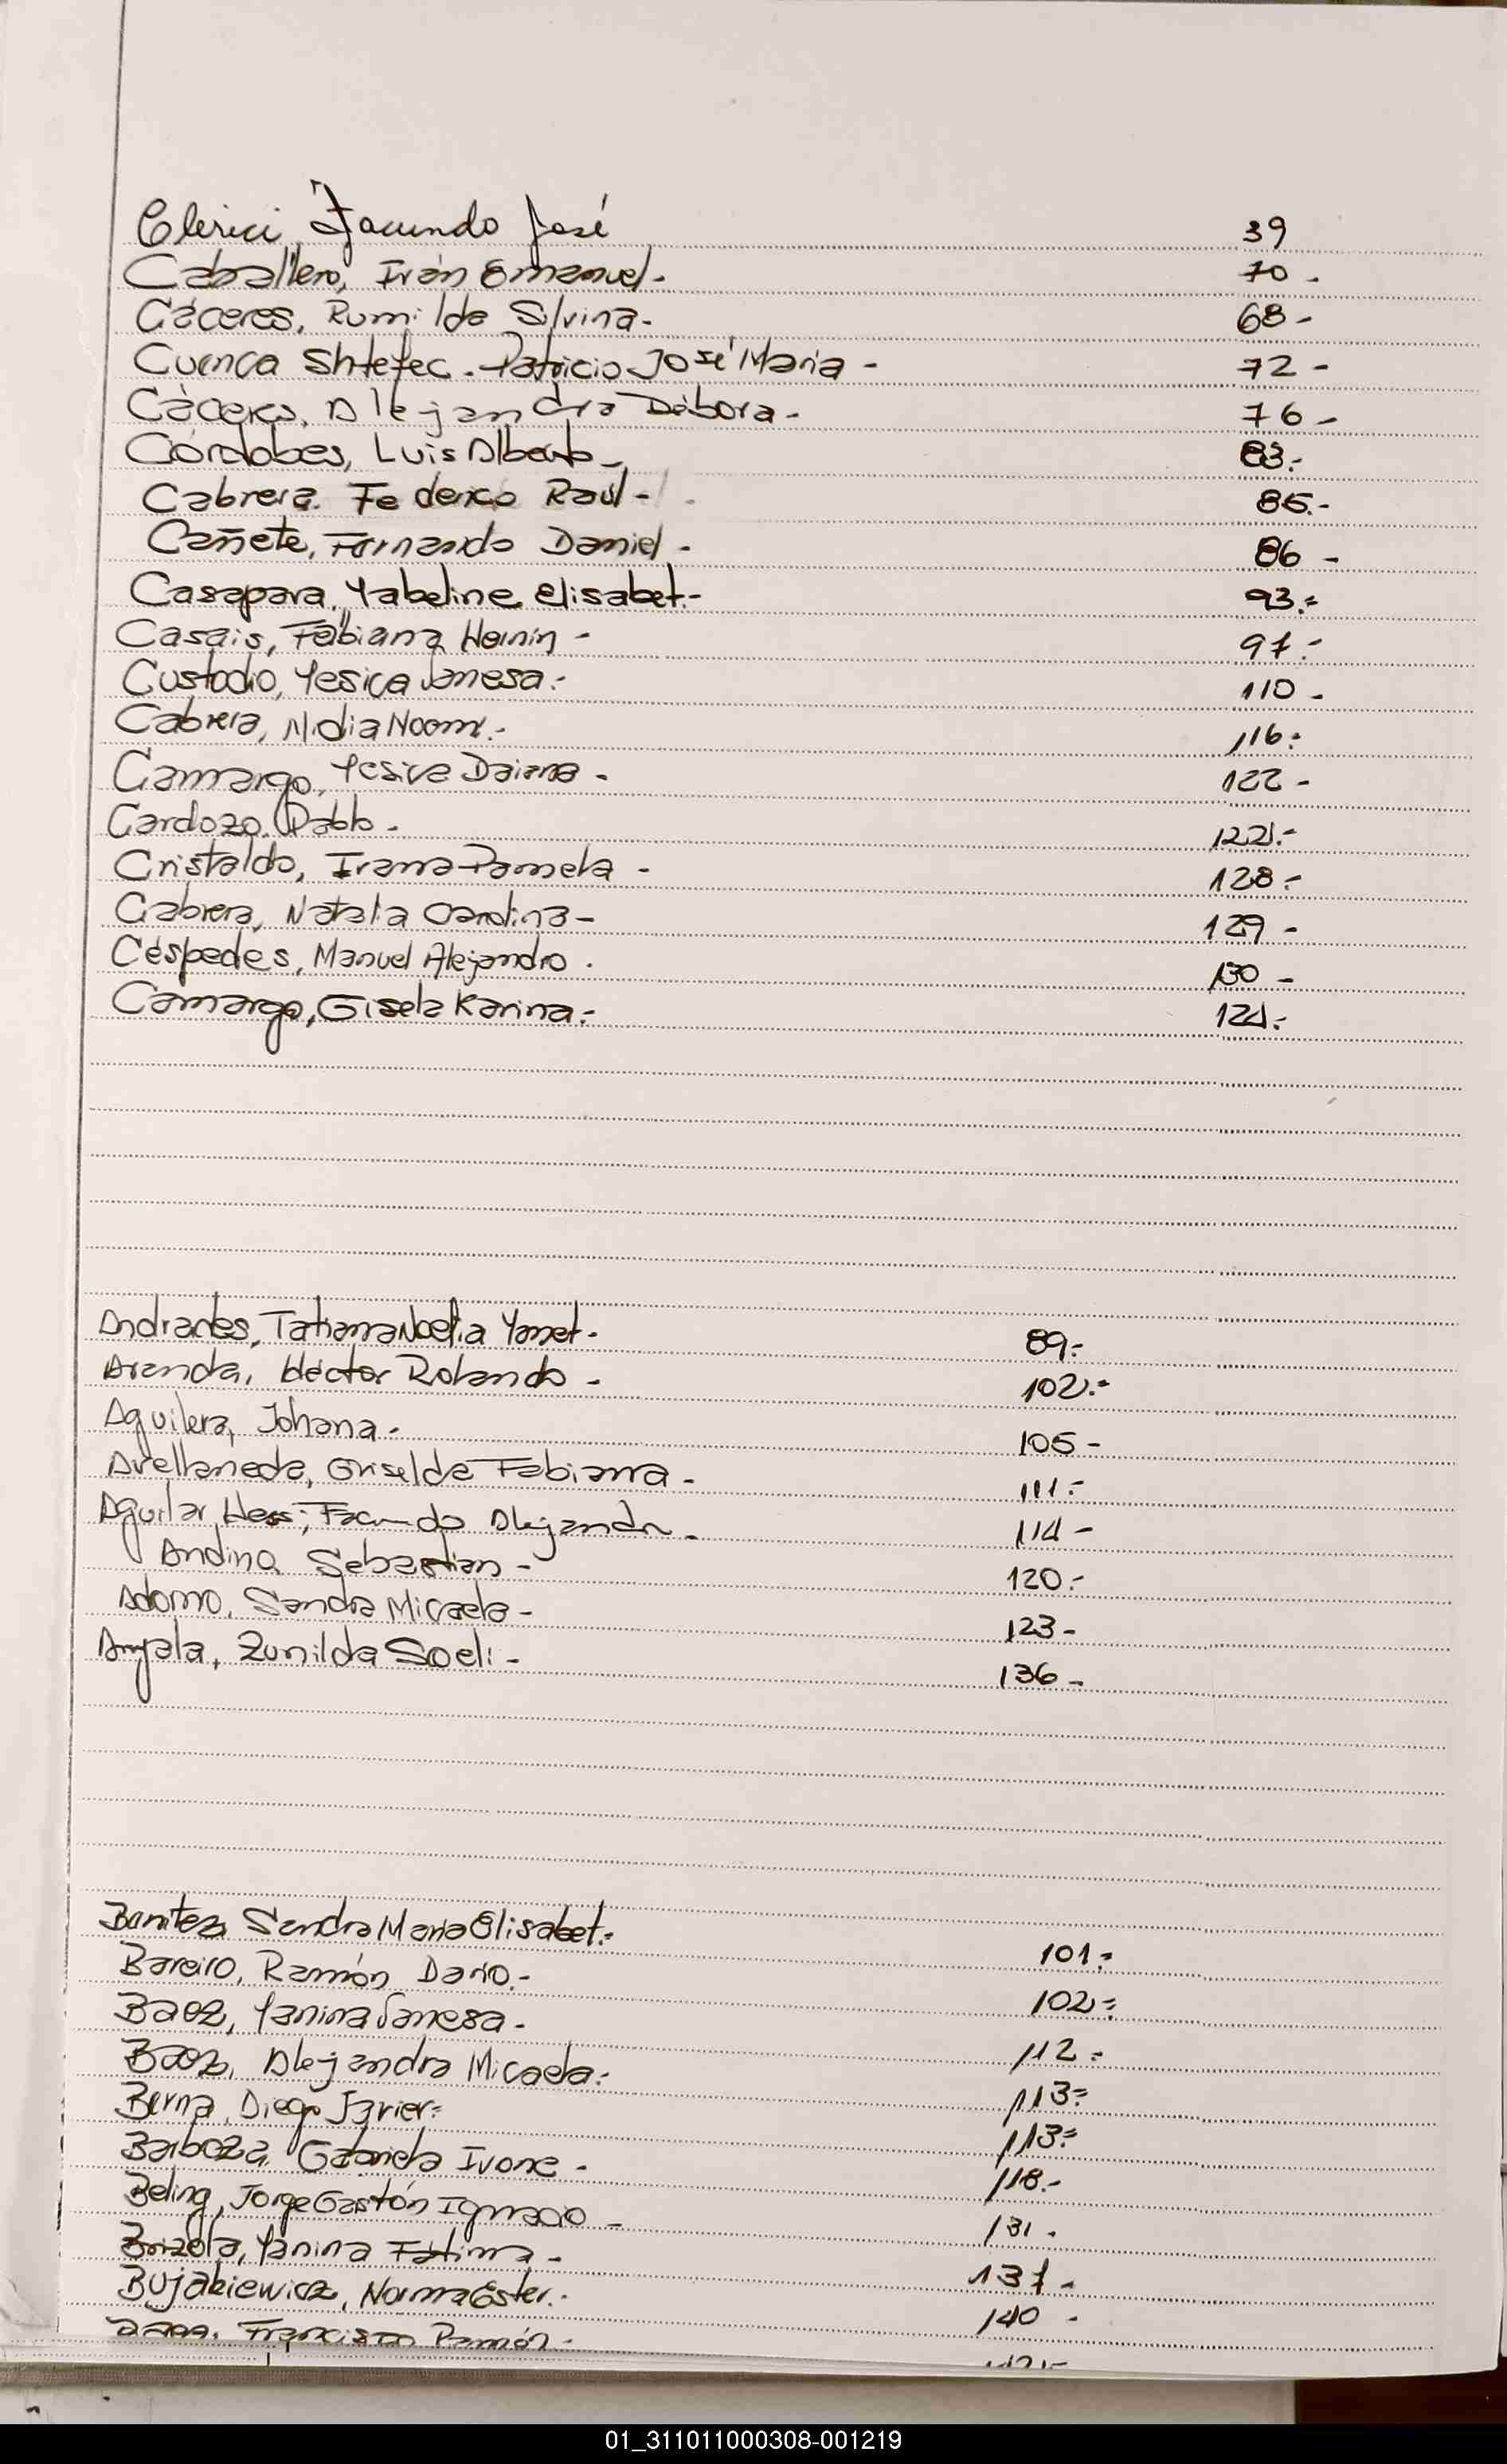 Clerici, Facundo José 39
Caballero, Iván Emanuel.- 70 -
Cáceres, Romilda Silvina.- 68 -
Cuenca Shtefec. Patricio José María - 72 -
Cáceres, Alejandra Débora.- 76 -
Córdobes, Luis Alberto - 83.-
Cabrera. Federico Raúl - 85.-
Cañete, Fernando Daniel - 86 -
Casapara, Yabeline Elisabet.- 93.-
Casais, Fabiana Hernin - 97.-
Custodio, Yesica Vanesa.- 110 -
Cabrera, Nidia Noemi.- 116.-
Camargo, Yesica Daiana - 122 -
Cardozo, Pablo - 122.-
Cristaldo, Irana Pamela - 128.-
Cabrera, Natalia Carolina - 129 -
Céspedes, Manuel Alejandro. 130 -
Camargo, Gisela Karina.- 124.-
Andrades, Tatiana Noelia Yanet.- 89.-
Aranda, Héctor Rolando - 102.-
Aguilera, Johana.- 105 -
Avellaneda, Griselda Fabiana - 111.-
Aguilar Hess, Facundo Alejandro - 114 -
Andino, Sebastian - 120.-
Adorno, Sandra Micaela - 123 -
Ayala, Zunilda Soeli - 136 -
Benitez, Sandra Maria Elisabet.- 101.-
Bareiro, Ramón Dario.- 102.-
Baez, Yanina Vanesa - 112.-
Baez, Alejandra Micaela.- 113.-
Berna, Diego Javier.- 113.-
Barboza, Gabriela Ivone - 118.-
Beling, Jorge Gastón Ignacio - 131.
Brizola, Yanina Fátima - 137 -
Bujakiewicz, Norma Ester.- 140 -
Francisco Ramón -
01_311011000308-001219